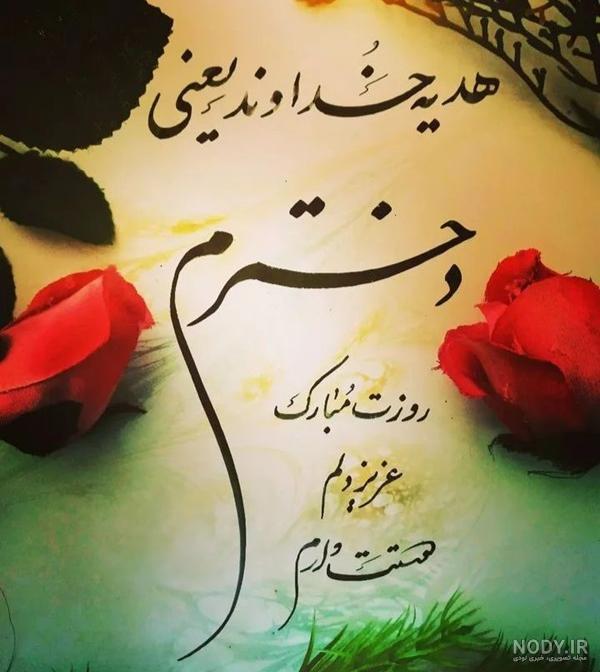 هدیه خداوند یعنی
دخترم
روزت مُبارک
عزیز دلم
دوستَت دارم
NODY.IR
مجله تصویری، خبری نودی